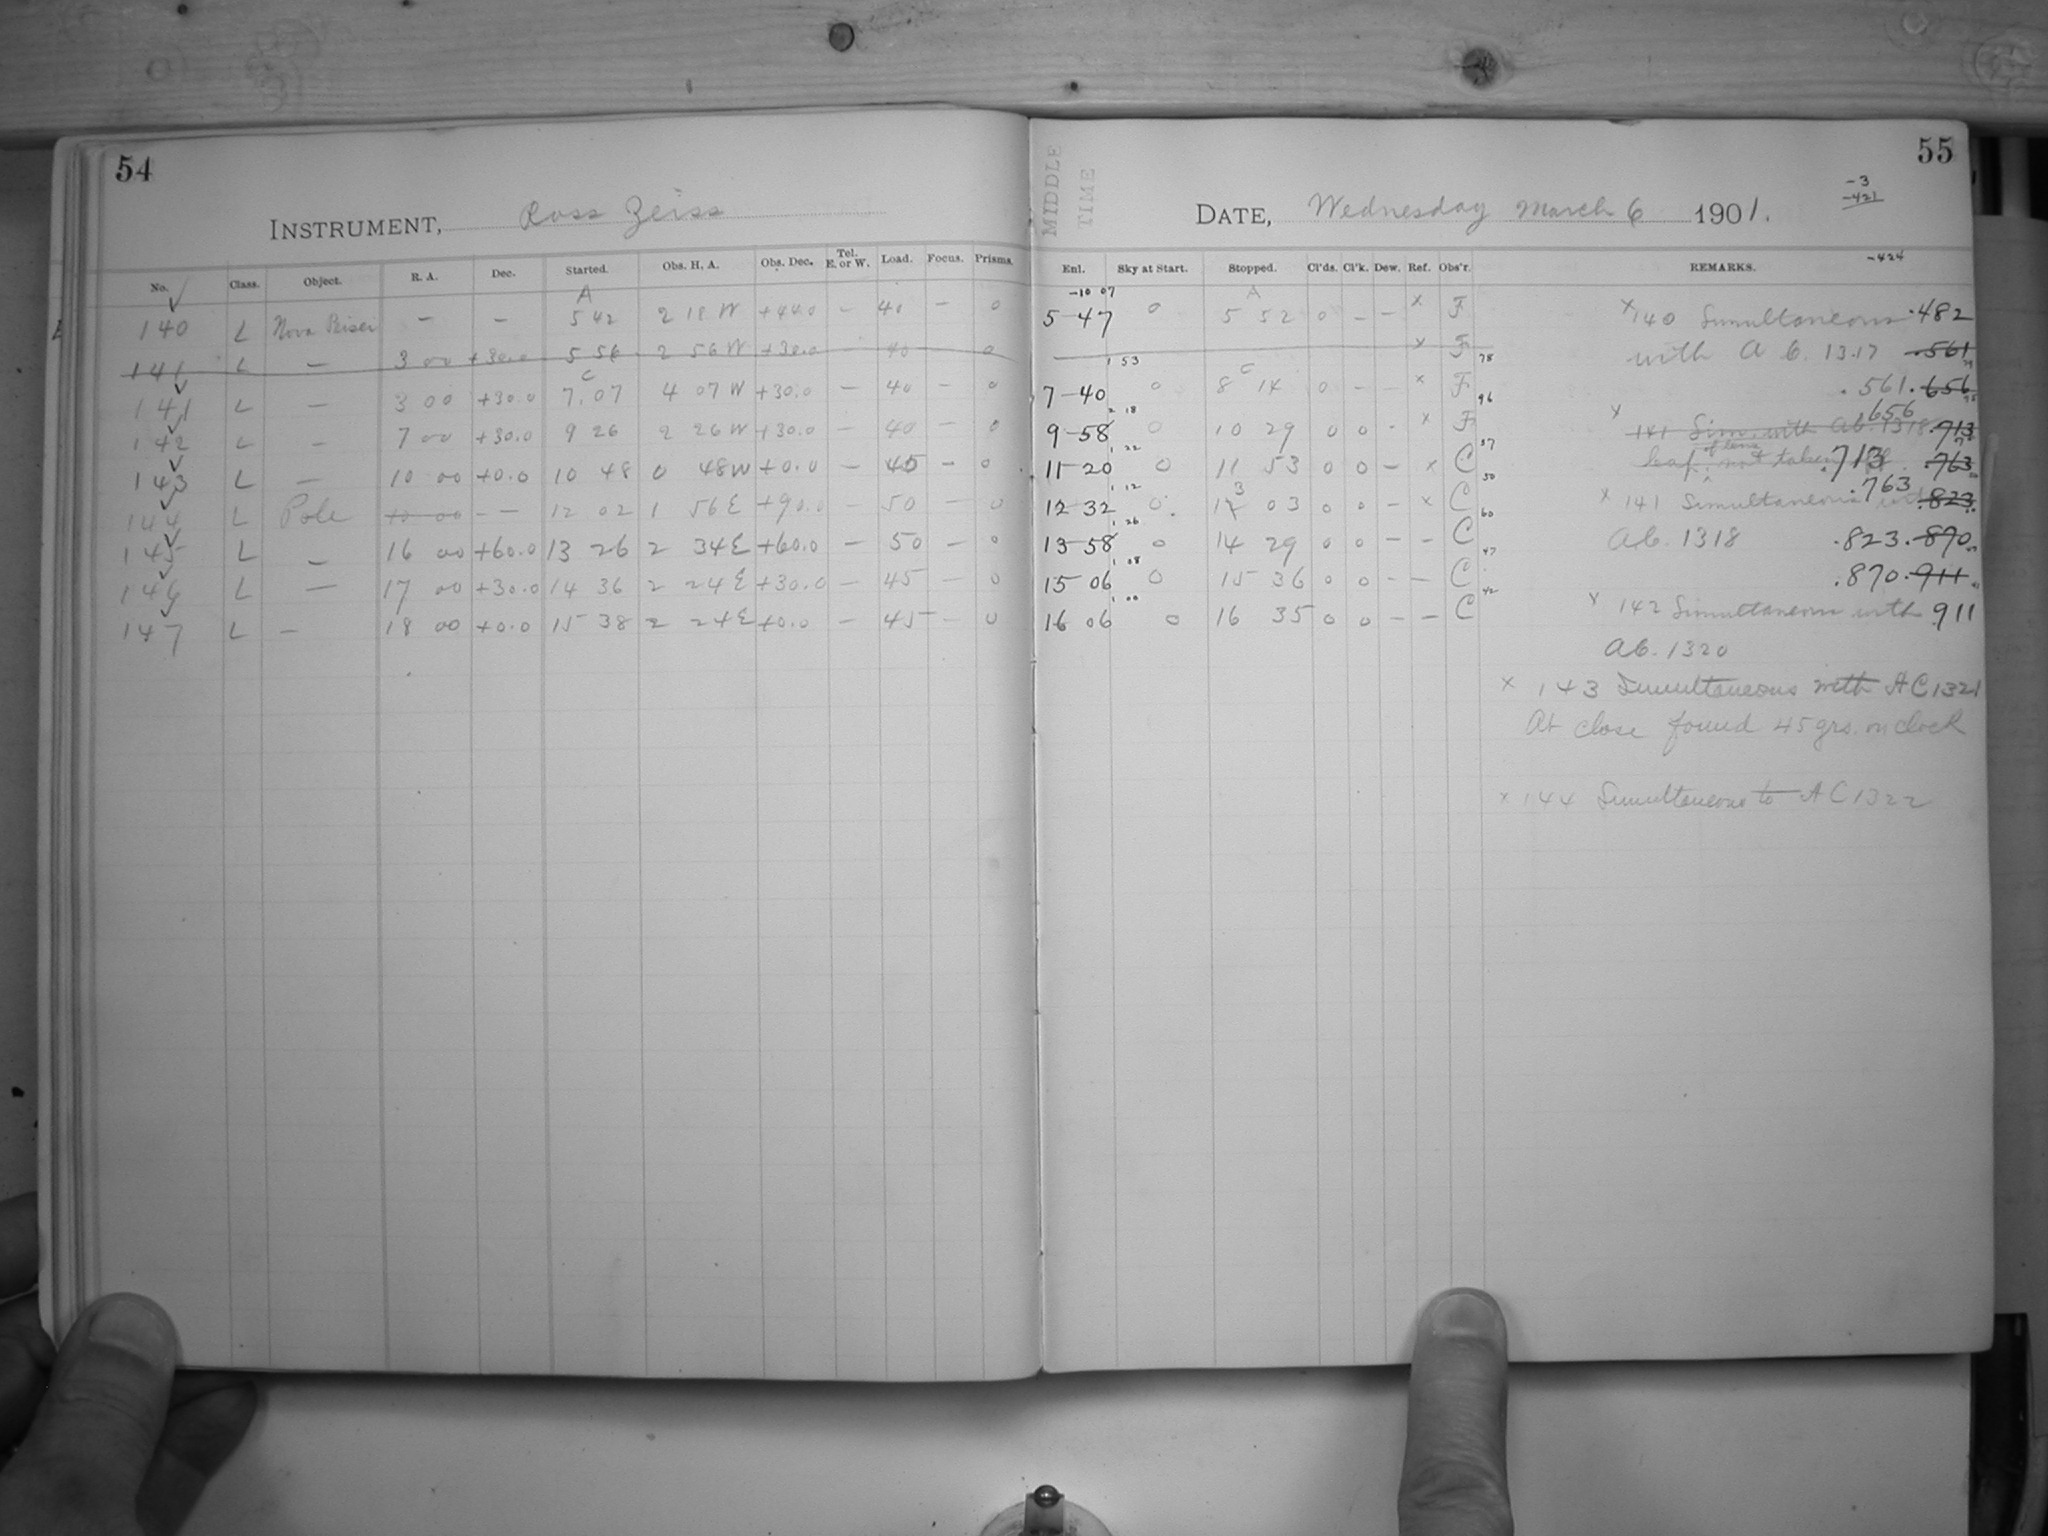 54
INSTRUMENT, Ross Zeiss
No. Class. Object. R. A. Dec. Started. Obs. H. A. Obs. Dec. Tel. E. or W. Load. Focus. Prisms.
A
140 L Nova Persei — — 5 42 2 18 W +44.0 — 40 — 0
141 L — 3 00 +30.0 5 56 2 56 W +30.0 — 40 0
C
141 L — 3 00 +30.0 7.07 4 07 W +30.0 — 40 — 0
142 L — 7 00 +30.0 9 26 2 26 W +30.0 — 40 — 0
143 L — 10 00 +0.0 10 48 0 48 W +0.0 — 45 — 0
144 L Pole 10 00 — — 12 02 1 56 E +90.0 — 50 — 0
145 L — 16 00 +60.0 13 26 2 34 E +60.0 — 50 — 0
146 L — 17 00 +30.0 14 36 2 24 E +30.0 — 45 — 0
147 L — 18 00 +0.0 15 38 2 24 E +0.0 — 45 — 0
55
MIDDLE
TIME
-3
-421
DATE, Wednesday March 6 1901.
-424
Enl. Sky at Start. Stopped. Cl'ds. Cl'k. Dew. Ref. Obs'r. REMARKS.
-10 07 A
5-47 0 5 52 0 — — x F
x F 78
1 53 C
7-40 0 8 14 0 — — x F 96
2 18
9-58 0 10 29 0 0 - x F 57
1 22
11-20 0 11 53 0 0 — x C 50
1 12 3
12-32 0 12 03 0 0 — x C 60
1 26
13-58 0 14 29 0 0 — — C 47
1 08
15 06 0 15 36 0 0 — — C 42
1 00
16 06 0 16 35 0 0 — — C
x 140 Simultaneous .482
with A C. 1317 .561
.561 .656
x .656
141 Sim. with AC. 1318 .713
leaf of lens not taken off .713 .763
.763
x 141 Simultaneous with .823
AC. 1318 .823 .870
.870 .911
x 142 Simultaneous with 911
AC. 1320
x 143 Simultaneous with AC 1321
At close found 45 grs. on clock
x 144 Simultaneous to AC 1322